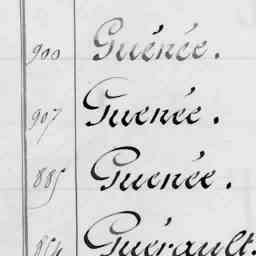 900 Guénée.
907 Guenée.
885 Guenée.
854 Guérault.